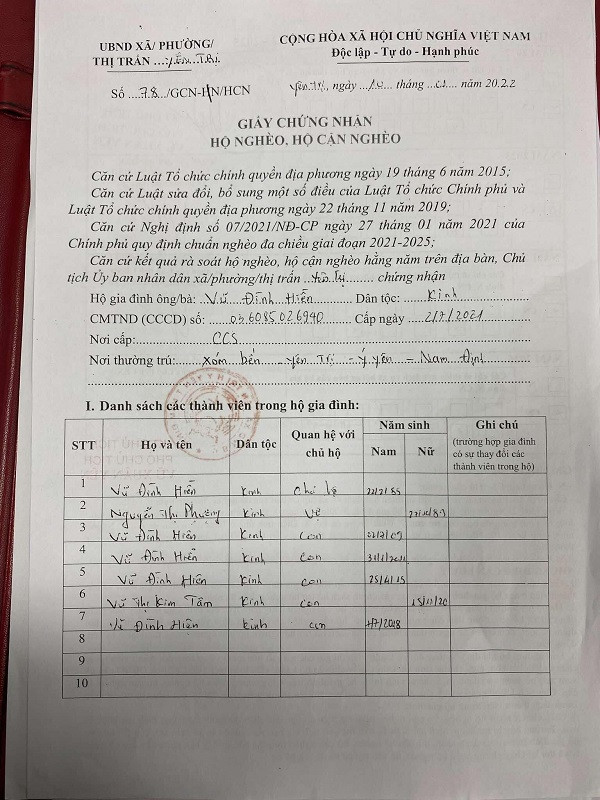 UBND XÃ/ PHƯỜNG/
THỊ TRẤN ...Yên Trị
CỘNG HÒA XÃ HỘI CHỦ NGHĨA VIỆT NAM
Độc lập - Tự do - Hạnh phúc
Số ...78.../GCN-HN/HCN
Yên Trị, ngày ... tháng ... năm 2022
GIẤY CHỨNG NHẬN
HỘ NGHÈO, HỘ CẬN NGHÈO
Căn cứ Luật Tổ chức chính quyền địa phương ngày 19 tháng 6 năm 2015;
Căn cứ Luật sửa đổi, bổ sung một số điều của Luật Tổ chức Chính phủ và
Luật Tổ chức chính quyền địa phương ngày 22 tháng 11 năm 2019;
Căn cứ Nghị định số 07/2021/NĐ-CP ngày 27 tháng 01 năm 2021 của
Chính phủ quy định chuẩn nghèo đa chiều giai đoạn 2021-2025;
Căn cứ kết quả rà soát hộ nghèo, hộ cận nghèo hằng năm trên địa bàn, Chủ
tịch Ủy ban nhân dân xã/phường/thị trấn ...Yên Trị... chứng nhận
Hộ gia đình ông/bà: Vũ Đình Hiển Dân tộc: Kinh
CMTND (CCCD) số: 036085026990 Cấp ngày 2/7/2021
Nơi cấp: CCS
Nơi thường trú: Xóm bến - Yên Trị - Ý yên - Nam Định
I. Danh sách các thành viên trong hộ gia đình:
STT Họ và tên Dân tộc Quan hệ với chủ hộ Năm sinh Nam Nữ Ghi chú (trường hợp gia đình có sự thay đổi các thành viên trong hộ)
1 Vũ Đình Hiển Kinh Chủ hộ
2 Nguyễn Thị Phượng Kinh Vợ
3 Vũ Đình Hiên Kinh con
4 Vũ Đình Hiển Kinh con
5 Vũ Đình Hiên Kinh con 25/4/15
6 Vũ Thị Kim Tâm Kinh con 15/11/20
7 Vũ Đình Hiên Kinh con
8
9
10